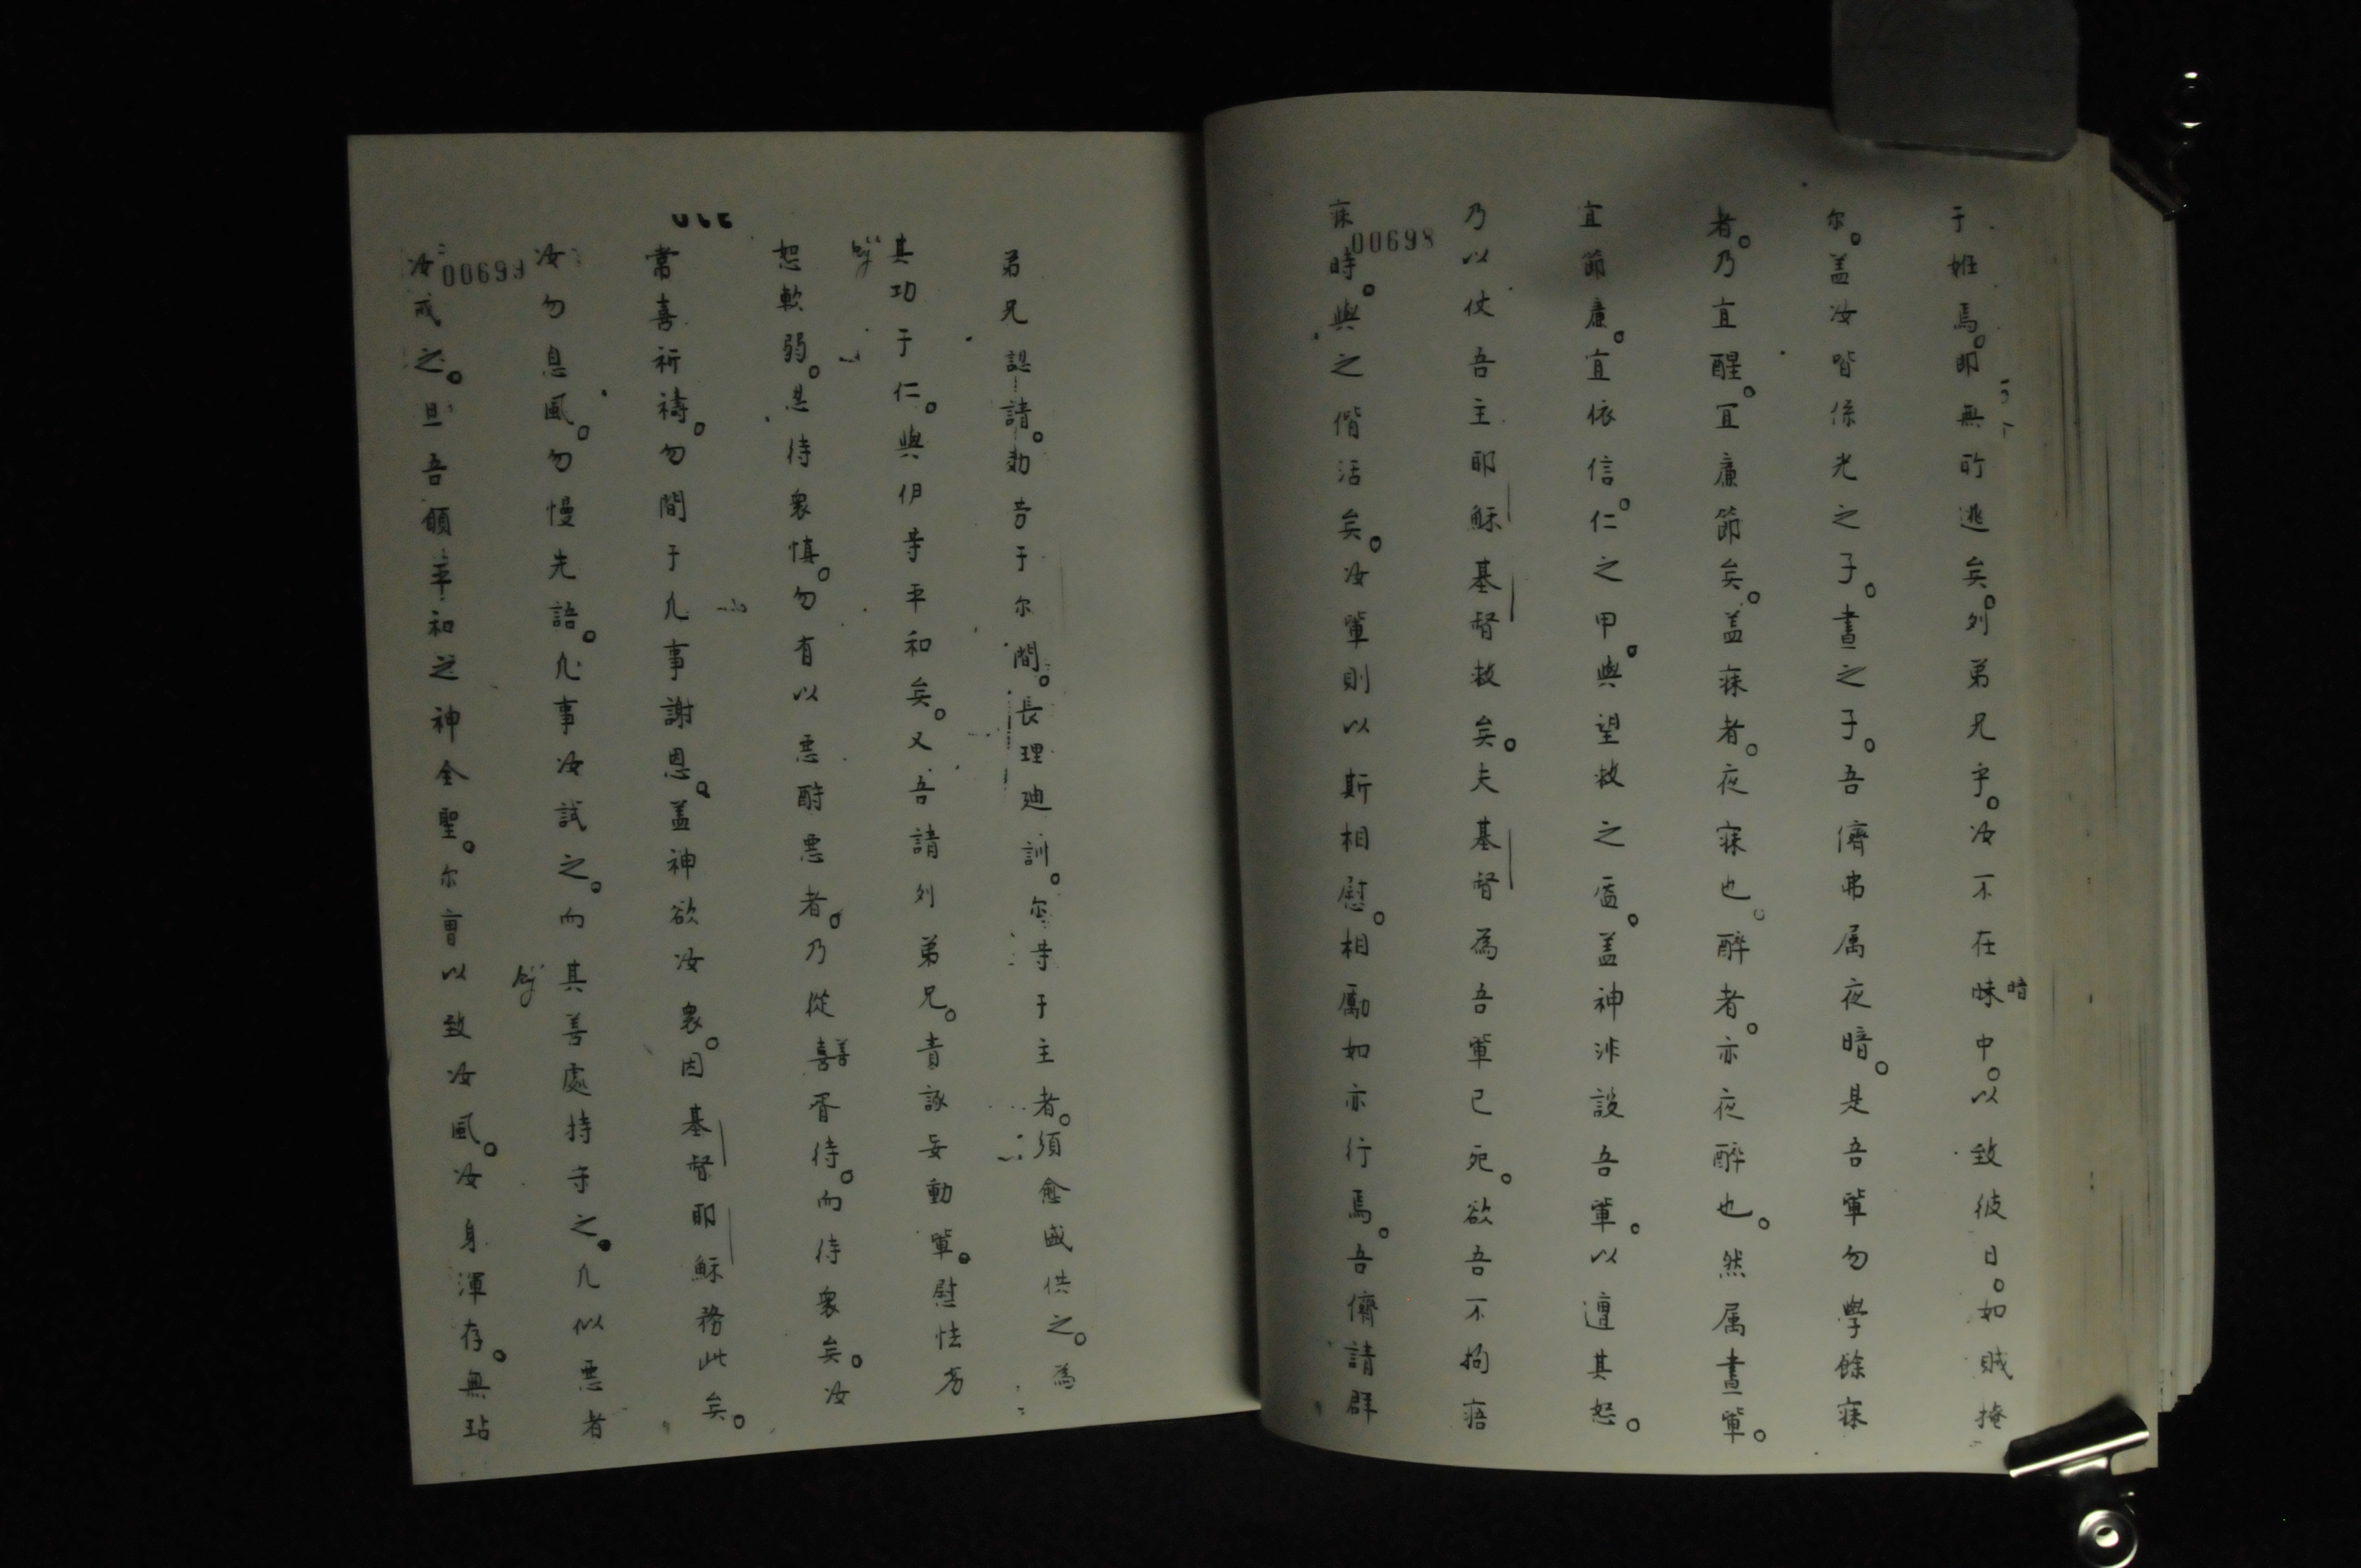 于姙焉。即無所逃矣。列弟兄乎。汝不在昧暗中。以致彼日。如賊掩
尔。盖汝皆係光之子。晝之子。吾儕弗属夜暗。是吾軰勿學餘寐
者。乃宜醒。宜廉節矣。盖寐者。夜寐也。醉者。亦夜醉也。然属晝軰。
宜節廉。宜依信。仁之甲。與望救之盔。盖神非設吾軰。以遭其怒。
乃以仗吾主耶穌基督救矣。夫基督為吾軰已死。欲吾不拘寤
寐時。與之偕活矣。汝軰則以斯相慰。相勵如亦行焉。吾儕請群
00698
弟兄認諸。勀苦于尔間。長理廸訓。尔等于主者。須愈盛供之。為
其功于仁。與伊等平和矣。又吾請列弟兄。責訴妄動軰。慰怯
恕軟弱。忍待衆慎。勿有以悪酧悪者。乃從喜善胥待。而待衆矣。汝
常喜祈禱。勿間于凢事謝恩。盖神欲汝衆。因基督耶穌務此矣。
汝勿息風。勿慢先語。凢事汝試之。而其善處持守之。凢似悪者
汝戒之。且吾願平和之神全聖。尔曹以致汝風。汝身渾存。無玷
00699